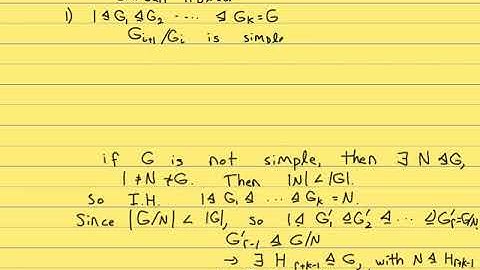 1) 1 ⊴ G₁ ⊴ G₂ ⋯ ⊴ Gₖ = G
Gᵢ₊₁/Gᵢ is simple
if G is not simple, then ∃ N ⊴ G,
1 ≠ N ≠ G. Then |N| < |G|.
So I.H. 1 ⊴ G₁ ⊴ ⋯ ⊴ Gₖ = N.
Since |G/N| < |G|, so 1 ⊴ G₁' ⊴ G₂' ⊴ ⋯ ⊴ Gᵣ' = G/N
G'ᵣ₋₁ ⊴ G/N
→ ∃ Hᵣ₊ₖ₋₁ ⊴ G, with N ⊴ Hᵣ₊ₖ₋₁